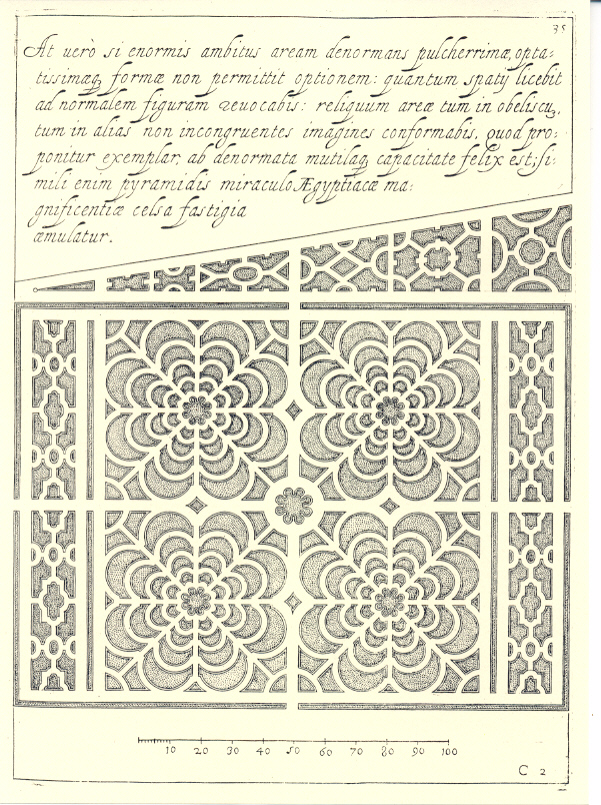 35
At uerò si enormis ambitus aream denormans pulcherrimæ, opta-
tissimæq́; formæ non permittit optionem: quantum spatÿ licebit
ad normalem figuram reuocabis: reliquum areæ tum in obeliscũ,
tum in alias non incongruentes imagines conformabis, quod pro-
ponitur exemplar, ab denormata mutilaq́; capacitate felix est; si-
mili enim pyramidis miraculo Ægyptiacæ ma-
gnificentiæ celsa fastigia
æmulatur.
10 20 30 40 50 60 70 80 90 100
C 2